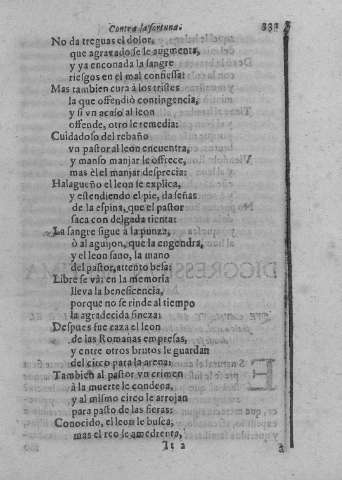 Contra la fortuna.
No da treguas el dolor,
que agravado se le augmenta,
y ya enconada la sangre
riesgos en el mal confiessa:
Mas tambien cura à los tristes
la que offendiò contingencia,
y si vn acaso al leon
offende, otro le remedia:
Cuidadoso del rebaño
vn pastor al leon encuentra,
y manso manjar le offrece,
mas èl el manjar desprecia:
Halagueño el leon se explica,
y estendiendo el pie, da señas
de la espina, que el pastor
saca con delgada tienta:
La sangre sigue à la punza,
ò al aguijon, que la engendra,
y el leon sano, la mano
del pastor attento besa:
Libre se và: en la memoria
lleva la beneficencia,
porque no se rinde al tiempo
la agradecida fineza:
Despues fue caza el leon
de las Romanas empresas,
y entre otros brutos le guardan
del circo para la arena:
Tambien al pastor vn crimen
à la muerte le condena,
y al mismo circo le arrojan
para pasto de las fieras:
Conocido, el leon le busca,
mas el reo se amedrenta,